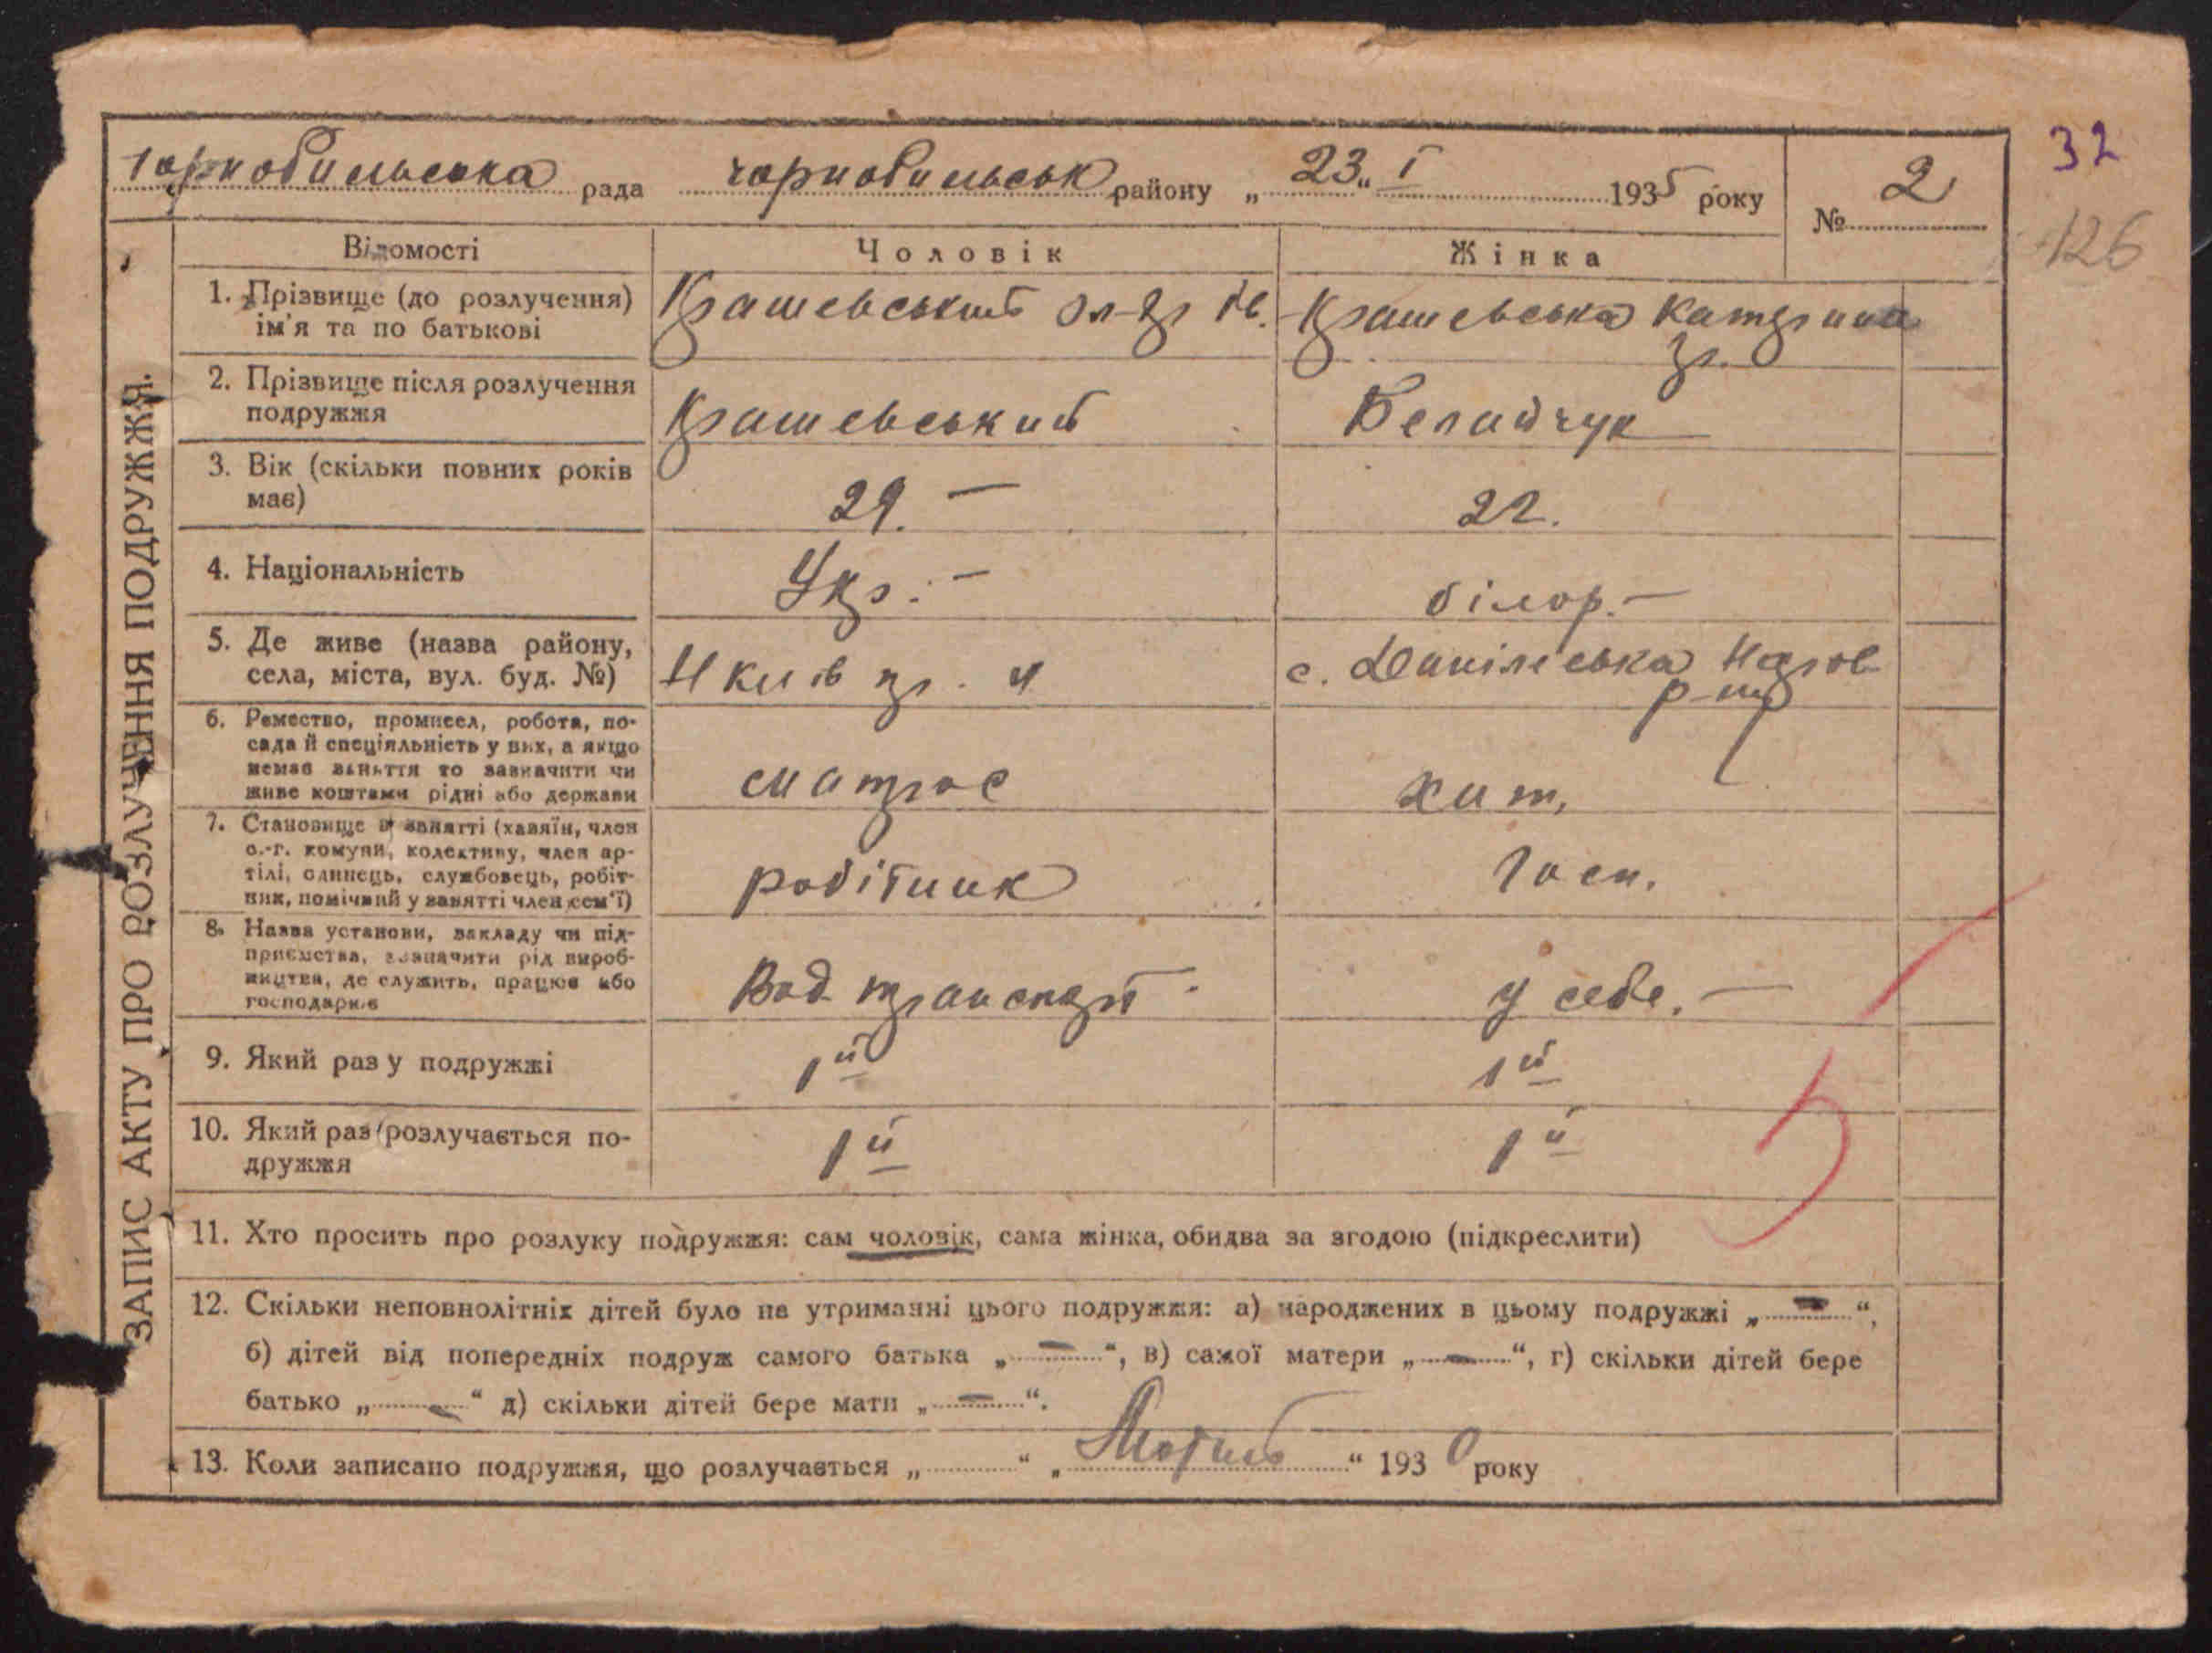 чорнобильська рада чорнобильськ району „ 23 “ I 1935 року № 2
32
126
ЗАПИС АКТУ ПРО РОЗЛУЧЕННЯ ПОДРУЖЖЯ.
Відомості Чоловік Жінка
1. Прізвище (до розлучення) ім'я та по батькові
Крашевський Ол-др Ів.
Крашевська Катерина
гр.
2. Прізвище після розлучення подружжя
Крашевський
3. Вік (скільки повних років має)
29. —
22.
4. Національність
Укр. —
білор. —
5. Де живе (назва району, села, міста, вул. буд. №)
с.
р-ну
6. Ремество, промисел, робота, посада й спеціяльність у них, а якщо немає заняття то зазначити чи живе коштами рідні або держави
матрос
хит,
7. Становище в занятті (хазяїн, член с.-г. комуни, колективу, член артілі, одинець, службовець, робітник, помічний у занятті член сем'ї)
робітник
Госп.
8. Назва установи, закладу чи підприємства, зазначити рід виробництва, де служить, працює або господарює
Вод транспорт
у себе. —
9. Який раз у подружжі
1й
1й
10. Який раз розлучається подружжя
1й
1й
11. Хто просить про розлуку подружжя: сам чоловік, сама жінка, обидва за згодою (підкреслити)
12. Скільки неповнолітніх дітей було на утриманні цього подружжя: а) народжених в цьому подружжі „ — “,
б) дітей від попередніх подруж самого батька „ — “, в) самої матери „ — “, г) скільки дітей бере
батько „ — “ д) скільки дітей бере мати „ — “.
13. Коли записано подружжя, що розлучається „ “ „ Лютий “ 1930 року